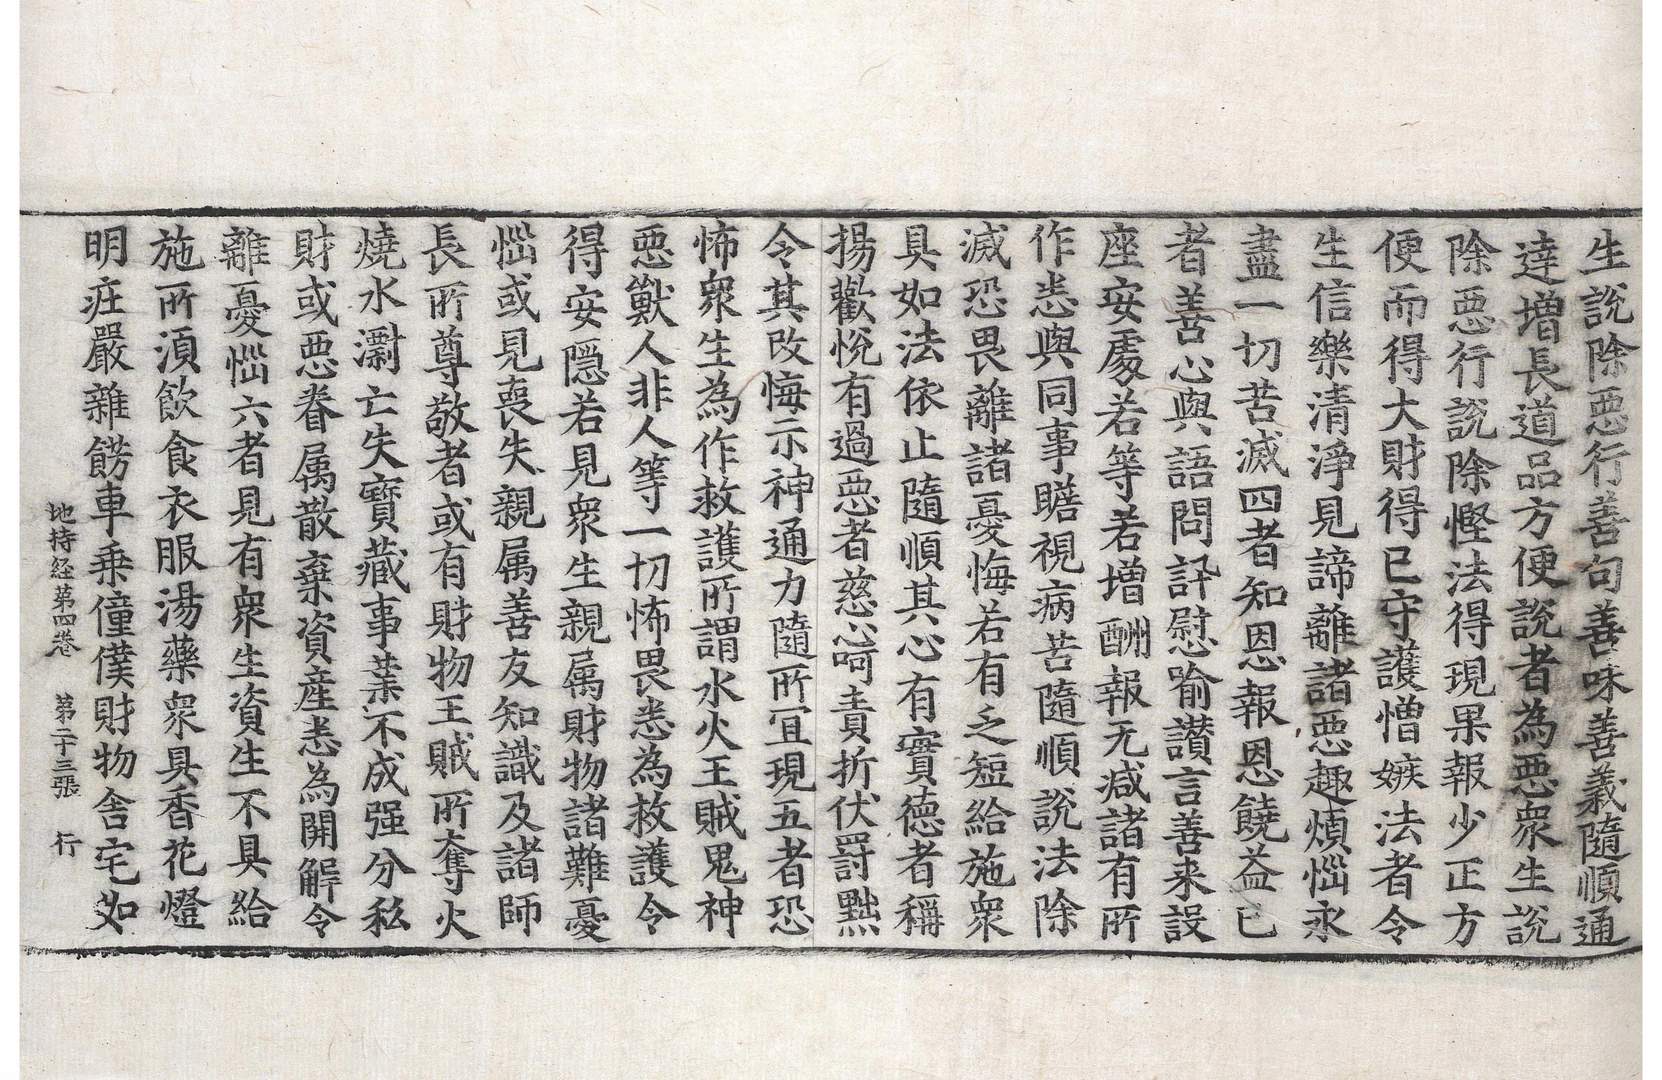 生說除惡行善句善味善義隨順通
達增長道品方便說者為惡衆生說
除惡行說除慳法得現果報少正方
便而得大財得已守護憎嫉法者令
生信樂清淨見諦離諸惡趣煩惱永
盡一切苦滅四者知恩報恩饒益已
者善心與語問訊慰喻讃言善来設
座安處若等若增酬報无减諸有所
作悉與同事瞻視病苦隨順說法除
滅恐畏離諸憂悔若有乏短給施衆
具如法依止隨順其心有實德者稱
揚歡悅有過惡者慈心呵責折伏罸黜
令其改悔示神通力隨所宜現五者恐
怖衆生為作救護所謂水火王賊鬼神
惡獸人非人等一切怖畏悉為救護令
得安隱若見衆生親属財物諸難憂
惱或見喪失親属善友知識及諸師
長所尊敬者或有財物王賊所奪火
燒水㵱亡失寶藏事業不成强分私
財或惡眷属散棄資産悉為開解令
離憂惱六者見有衆生資生不具給
施所湏飲食衣服湯藥衆具香花燈
明莊嚴雜餝車乗僮僕財物舍宅如
地持経第四卷 第二十三張 行